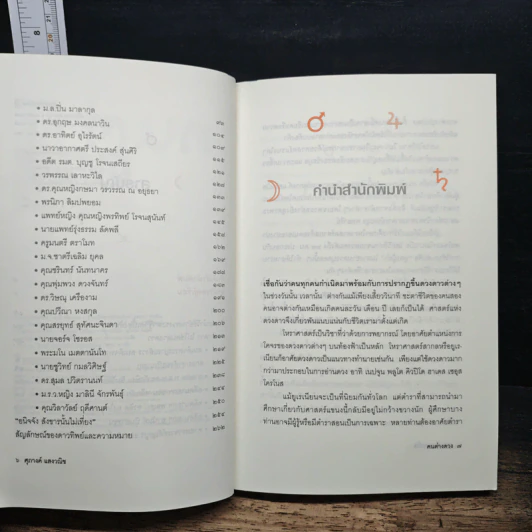 • ม.ล.ปิ่น มาลากุล
• ดร.อุกฤษ มงคลนาวิน
• ดร.อาทิตย์ อุไรรัตน์ ๑๐๙
• นาวาอากาศตรี ประสงค์ สุ่นศิริ ๑๑๕
• อดีต รมต. บุญชู โรจนเสถียร
• วรพรรณ เลาหะวิไล
• ดร.คุณหญิงกษมา วรวรรณ ณ อยุธยา
• พรนิภา ลิมปพยอม
• แพทย์หญิง คุณหญิงพรทิพย์ โรจนสุนันท์ ๑๔๕
• นายแพทย์รุ่งธรรม ลัดพลี
• ครูมนตรี ตราโมท ๑๖๒
• ม.จ.ชาตรีเฉลิม ยุคล
• คุณชรินทร์ นันทนาคร
• คุณพุ่มพวง ดวงจันทร์
• ดร.วิษณุ เครืองาม
• คุณปวีณา หงสกุล
• คุณสรยุทธ สุทัศนะจินดา
• นายจอร์จ โซรอส
• พระมโน เมตตานันโท
• นายชูวิทย์ กมลวิศิษฎ์
• ดร.สุเมล ปวิตรานนท์
• ม.ร.ว.หญิง มาลินี จักรพันธุ์
• คุณวิลาวัลย์ ฤดีศานต์
"อนิจจัง สังขารนั้นไม่เที่ยง" ๒๖๔
สัญลักษณ์ของดาวทิพย์และความหมาย
๖ ศุภางค์ แสงวณิช
คำนำสำนักพิมพ์
เชื่อกันว่าคนทุกคนกำเนิดมาพร้อมกับการปรากฏขึ้นดวงดาวต่างๆ
ในช่วงวันนั้น เวลานั้น ต่างกันแม้เพียงเสี้ยววินาที ชะตาชีวิตของคนสอง
คนอาจต่างกันเหมือนเกิดคนละวัน เดือน ปี เลยก็เป็นได้ ศาสตร์แห่ง
ดวงดาวจึงเกี่ยวพันแนบแน่นกับชีวิตเรามาตั้งแต่เกิด
โหราศาสตร์เป็นวิชาที่ว่าด้วยการพยากรณ์ โดยอาศัยตำแหน่งการ
โคจรของดวงดาวต่างๆ บนท้องฟ้าเป็นหลัก โหราศาสตร์สากลหรือยูเร
เนียนก็อาศัยดวงดาวเป็นแนวทางทำนายเช่นกัน เพียงแต่ใช้ดวงดาวมาก
กว่ามาประกอบการอ่านดวง อาทิ เนปจูน พลูโต คิวปิโด ฮาเดส เซอุส
โครโนส
แม้ยูเรเนียนจะเป็นที่นิยมกันทั่วโลก แต่ตำราที่สามารถนำมา
ศึกษาเกี่ยวกับศาสตร์แขนงนี้กลับมีอยู่ไม่กว้างขวางนัก ผู้ศึกษาบาง
ท่านอาจมีผู้รู้หรือมีตำราสอนเป็นการเฉพาะ หลายท่านต้องอาศัยตำรา
คนค้างดวง ๗